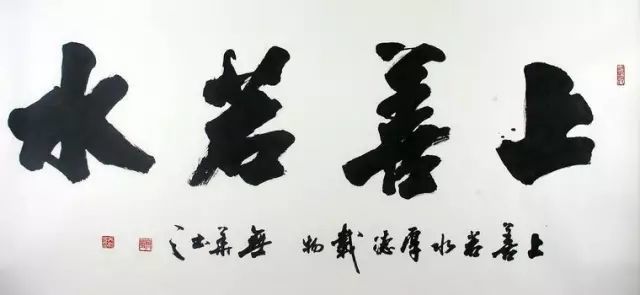 上善若水
上善若水厚德載物 無華书之